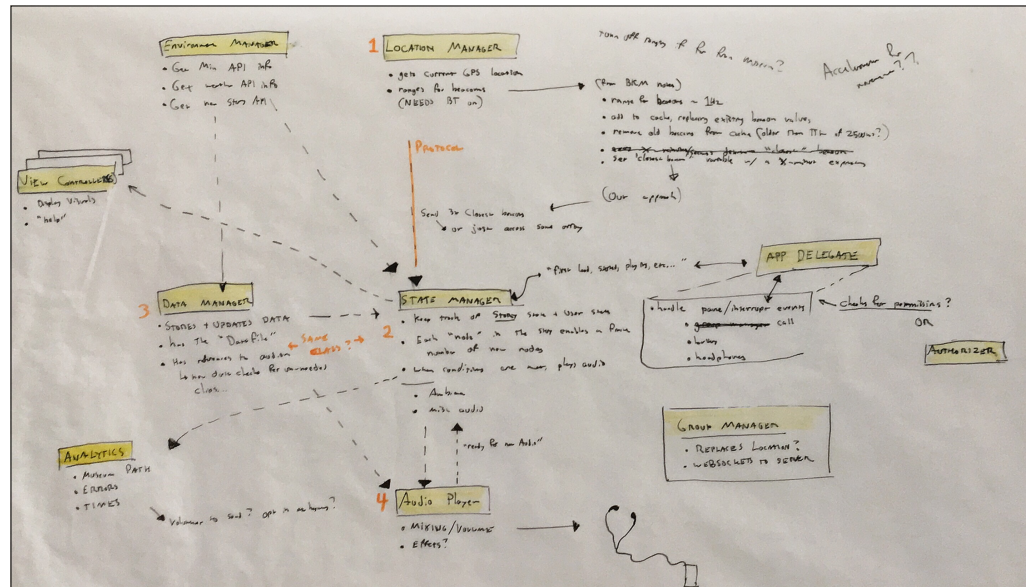 ENVIRONMENT MANAGER
• Get Mia API info
• Get weather API info
• Get new story API
1 LOCATION MANAGER
• gets current GPS location
• ranges for beacons
(NEEDS BT on)
PROTOCOL
Turn off ranging if far from museum?
Accelerometer for
movement??
(From BKM notes)
• range for beacons ~ 1Hz
• add to cache, replacing existing beacon values
• remove old beacons from cache (older than TTL of 2500ms?)
• set "closest beacon" variable w/ a X-minute expiry
(Our approach)
Send 3x closest beacons
or just access same array
VIEW CONTROLLERS
• Display Visuals
• "help"
3 DATA MANAGER
• STORES + UPDATES DATA
• has the "Data file"
• Has references to audio
clips...
SAME
CLASS?
2 STATE MANAGER
• Keep track of Story state + User state
• Each "node" in the story enables a finite
number of new nodes
• When conditions are met, plays audio
• Ambience
• misc audio
"first load, started, playing, etc..."
APP DELEGATE
• handle pause/interrupt events
• call
• headphones
checks for permissions?
OR
AUTHORIZER
GROUP MANAGER
• REPLACES LOCATION?
• WEBSOCKETS TO SERVER
ANALYTICS
• MUSEUM PATH
• ERRORS
• TIMES
Volunteer to send? opt in
"ready for new Audio"
4 Audio Player
• MIXING/VOLUME
• Effects?